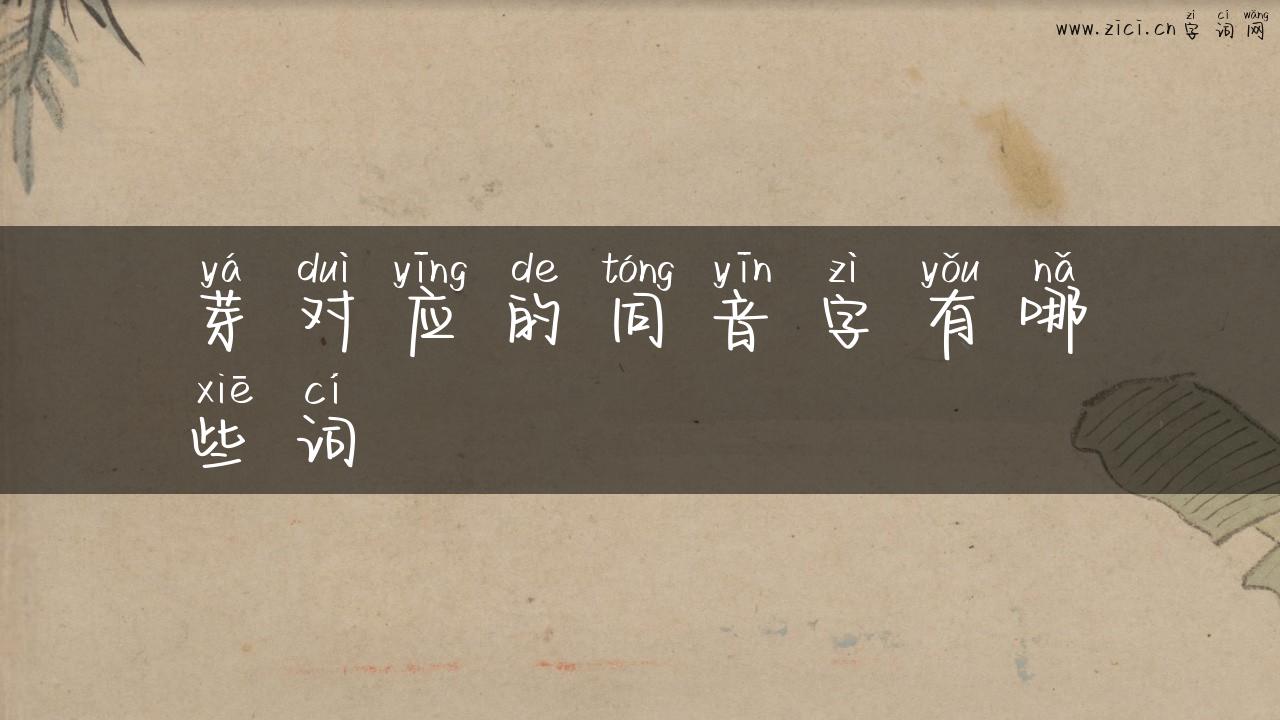 zì cí wǎng
www.zici.cn 字词网
yá duì yīng de tóng yīn zì yǒu nǎ
芽对应的同音字有哪
xiē cí
些词